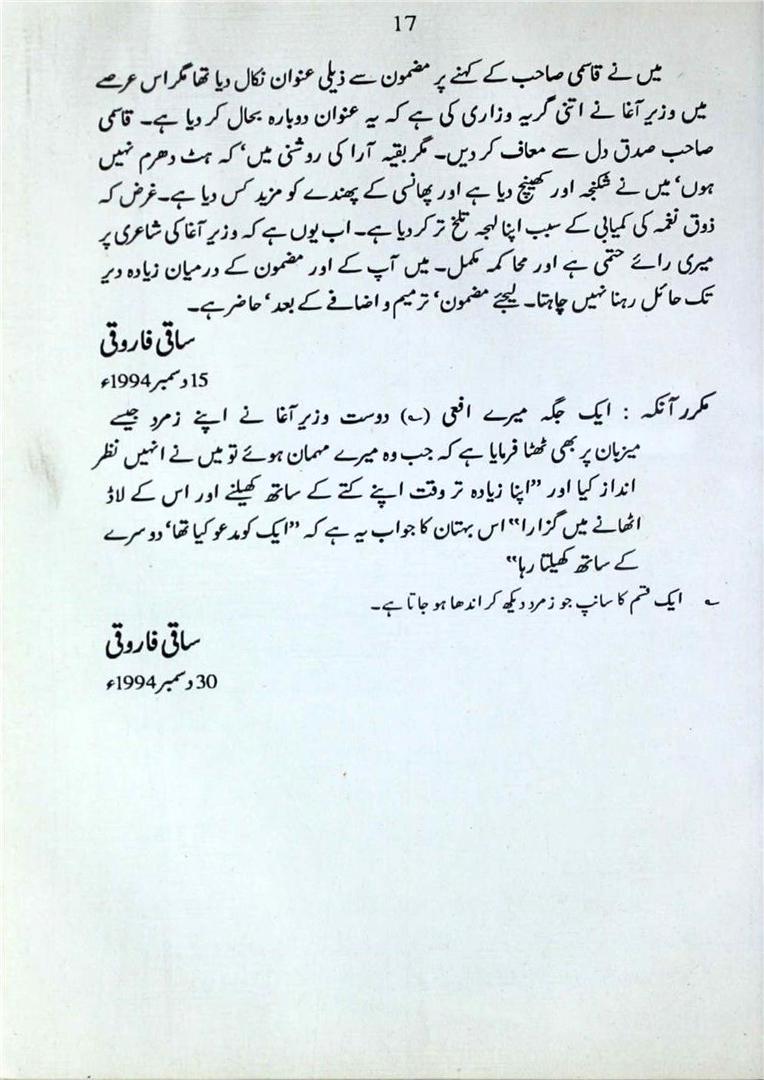 17
میں نے قاسمی صاحب کے کہنے پر مضمون سے ذیلی عنوان نکال دیا تھا مگر اس عرصے
میں وزیر آغا نے اتنی گریہ وزاری کی ہے کہ یہ عنوان دوبارہ بحال کر دیا ہے۔ قاسمی
صاحب صدق دل سے معاف کر دیں۔ مگر بقیہ آرا کی روشنی میں‘ کہ ہٹ دھرم نہیں
ہوں‘ میں نے شکنجہ اور کھینچ دیا ہے اور پھانسی کے پھندے کو مزید کس دیا ہے۔ غرض کہ
ذوق نغمہ کی کمیابی کے سبب اپنا لہجہ تلخ تر کر دیا ہے۔ اب یوں ہے کہ وزیر آغا کی شاعری پر
میری رائے حتمی ہے اور محاکمہ مکمل۔ میں آپ کے اور مضمون کے درمیان زیادہ دیر
تک حائل رہنا نہیں چاہتا۔ لیجئے مضمون‘ ترمیم و اضافے کے بعد‘ حاضر ہے۔
ساقی فاروقی
15 دسمبر 1994ء
مکرر آنکہ : ایک جگہ میرے افعی (؎) دوست وزیر آغا نے اپنے زمرد جیسے
میزبان پر بھی ٹھٹا فرمایا ہے کہ جب وہ میرے مہمان ہوئے تو میں نے انہیں نظر
انداز کیا اور ”اپنا زیادہ تر وقت اپنے کتے کے ساتھ کھیلنے اور اس کے لاڈ
اٹھانے میں گزارا“ اس بہتان کا جواب یہ ہے کہ ”ایک کو مدعو کیا تھا‘ دوسرے
کے ساتھ کھیلتا رہا“
؎ ایک قسم کا سانپ جو زمرد دیکھ کر اندھا ہو جاتا ہے۔
ساقی فاروقی
30 دسمبر 1994ء